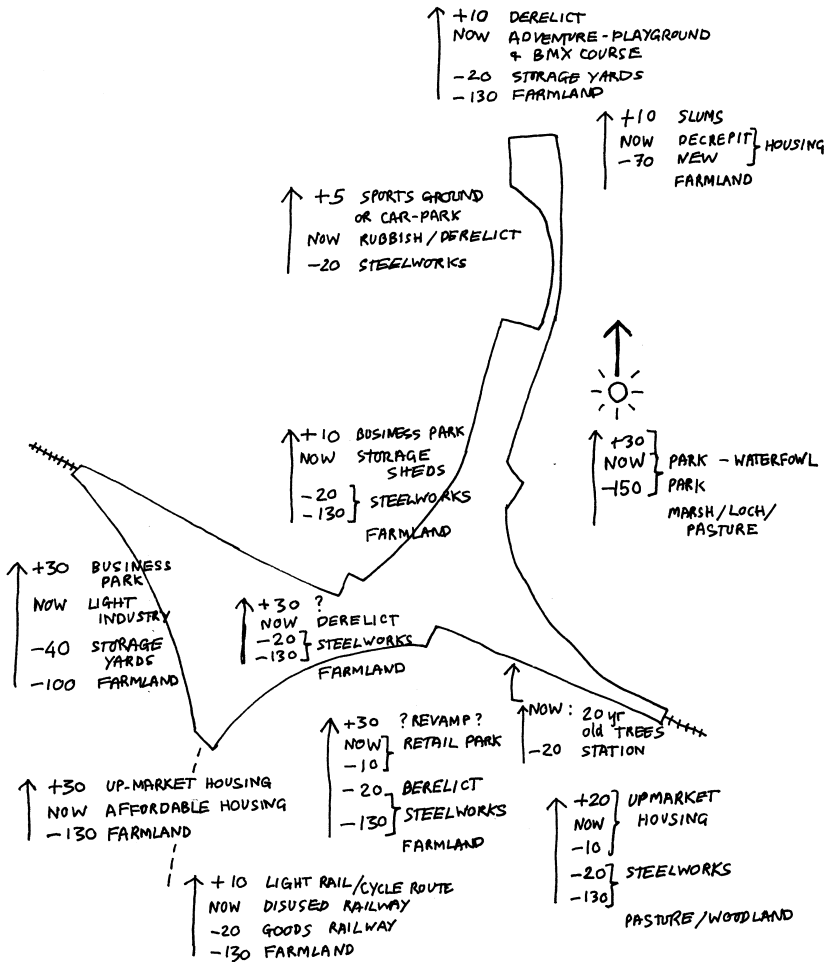 +10 DERELICT
NOW ADVENTURE-PLAYGROUND
& BMX COURSE
-20 STORAGE YARDS
-130 FARMLAND
+10 SLUMS
NOW DECREPIT
HOUSING
-70 NEW
FARMLAND
+5 SPORTS GROUND
OR CAR-PARK
NOW RUBBISH/DERELICT
-20 STEELWORKS
+10 BUSINESS PARK
NOW STORAGE
SHEDS
-20
STEELWORKS
-130
FARMLAND
+30
NOW PARK - WATERFOWL
-150 PARK
MARSH/LOCH/
PASTURE
+30 BUSINESS
PARK
NOW LIGHT
INDUSTRY
-40 STORAGE
YARDS
-100 FARMLAND
+30 ?
NOW DERELICT
-20
STEELWORKS
-130
FARMLAND
+30 ? REVAMP ?
NOW
RETAIL PARK
-10
-20 BERELICT
STEELWORKS
-130
FARMLAND
NOW: 20 yr
old TREES
-20 STATION
+30 UP-MARKET HOUSING
NOW AFFORDABLE HOUSING
-130 FARMLAND
+20 UPMARKET
NOW HOUSING
-10
-20 STEELWORKS
-130
PASTURE/WOODLAND
+10 LIGHT RAIL/CYCLE ROUTE
NOW DISUSED RAILWAY
-20 GOODS RAILWAY
-130 FARMLAND